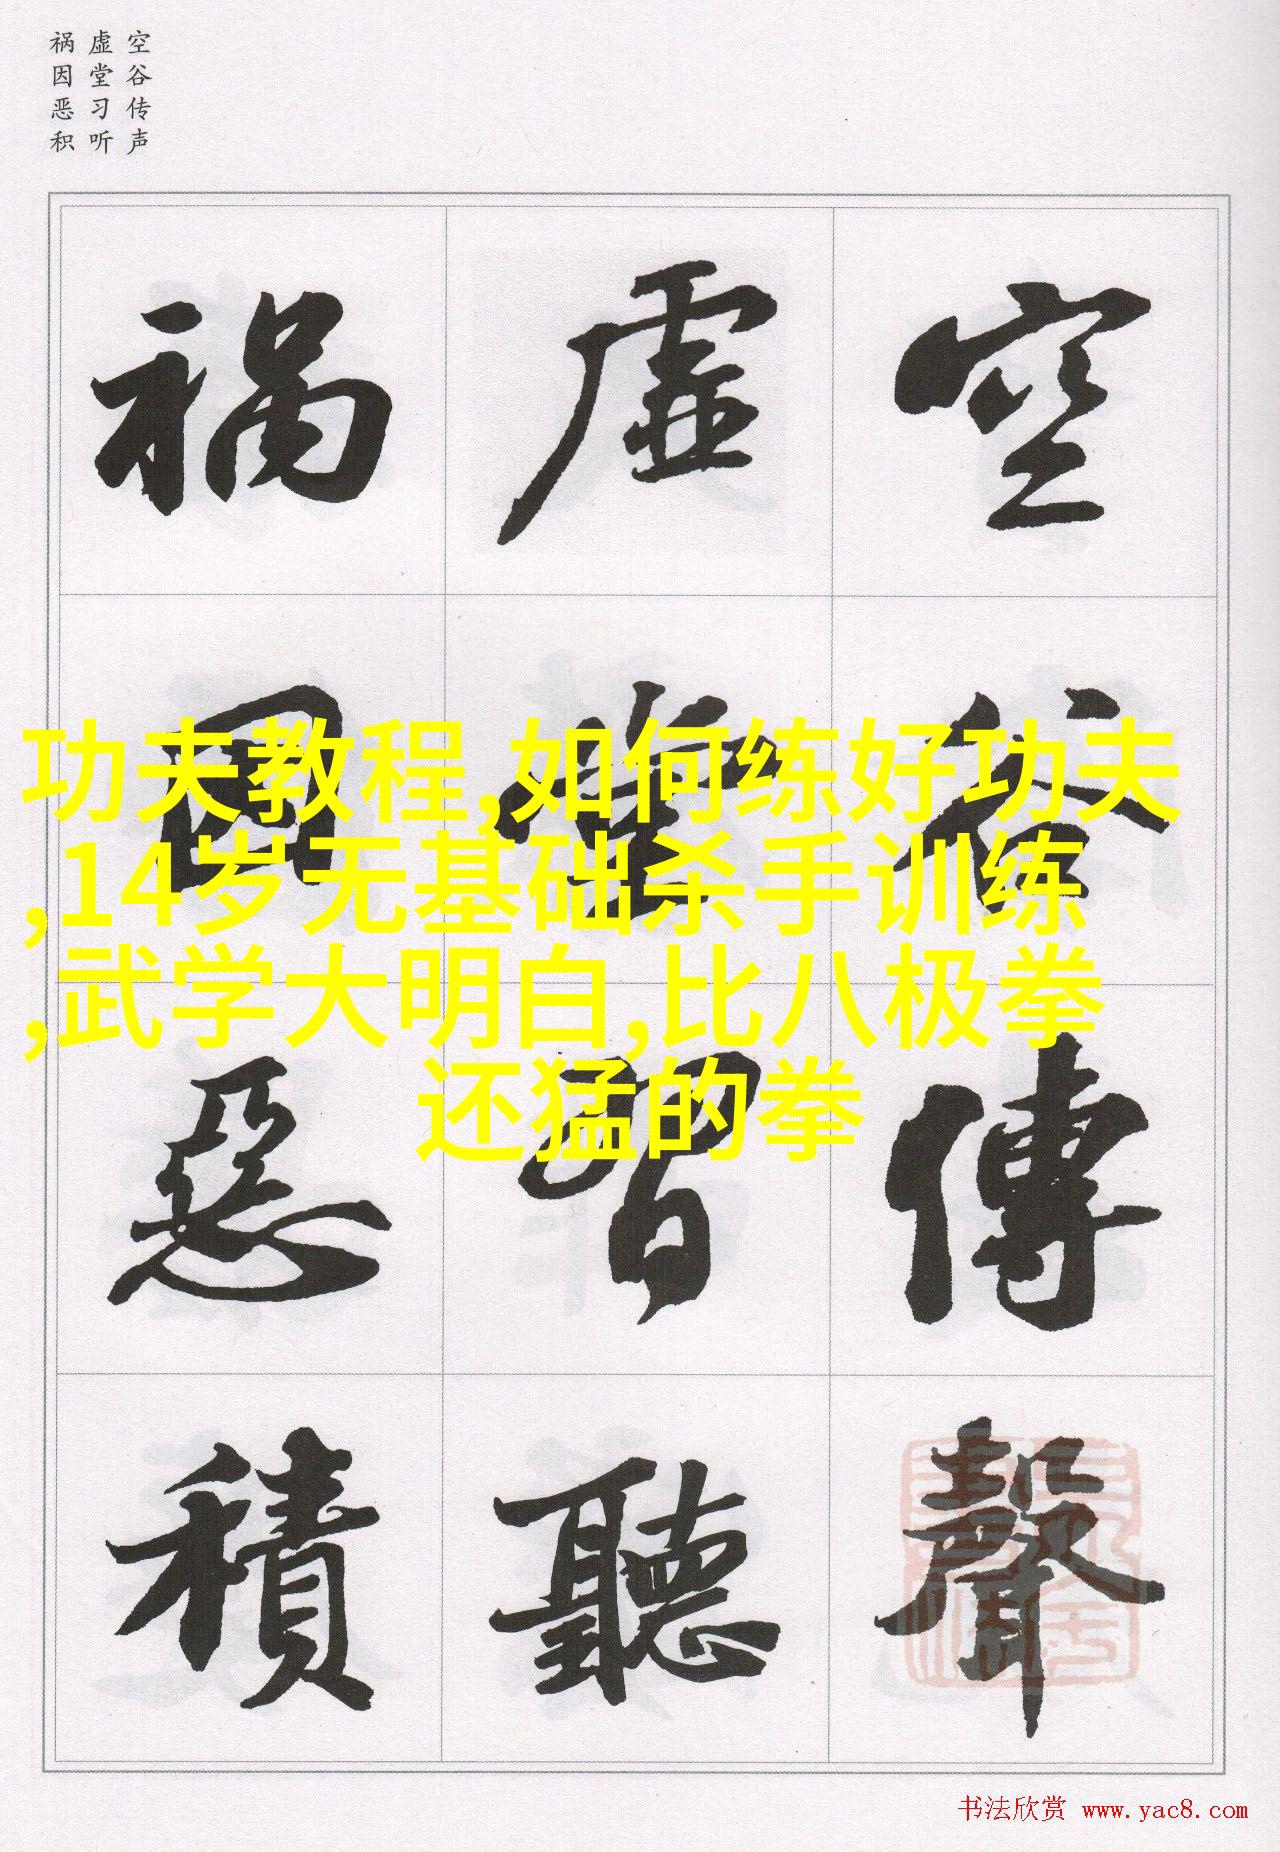 空谷传声
虚堂习听
祸因恶积
空谷傳聲
虚堂習聽
祸因惡積
功夫教程,如何练好功夫
,14岁无基础杀手训练
,武学大明白,比八极拳
还猛的拳
书法欣赏 www.yac8.com